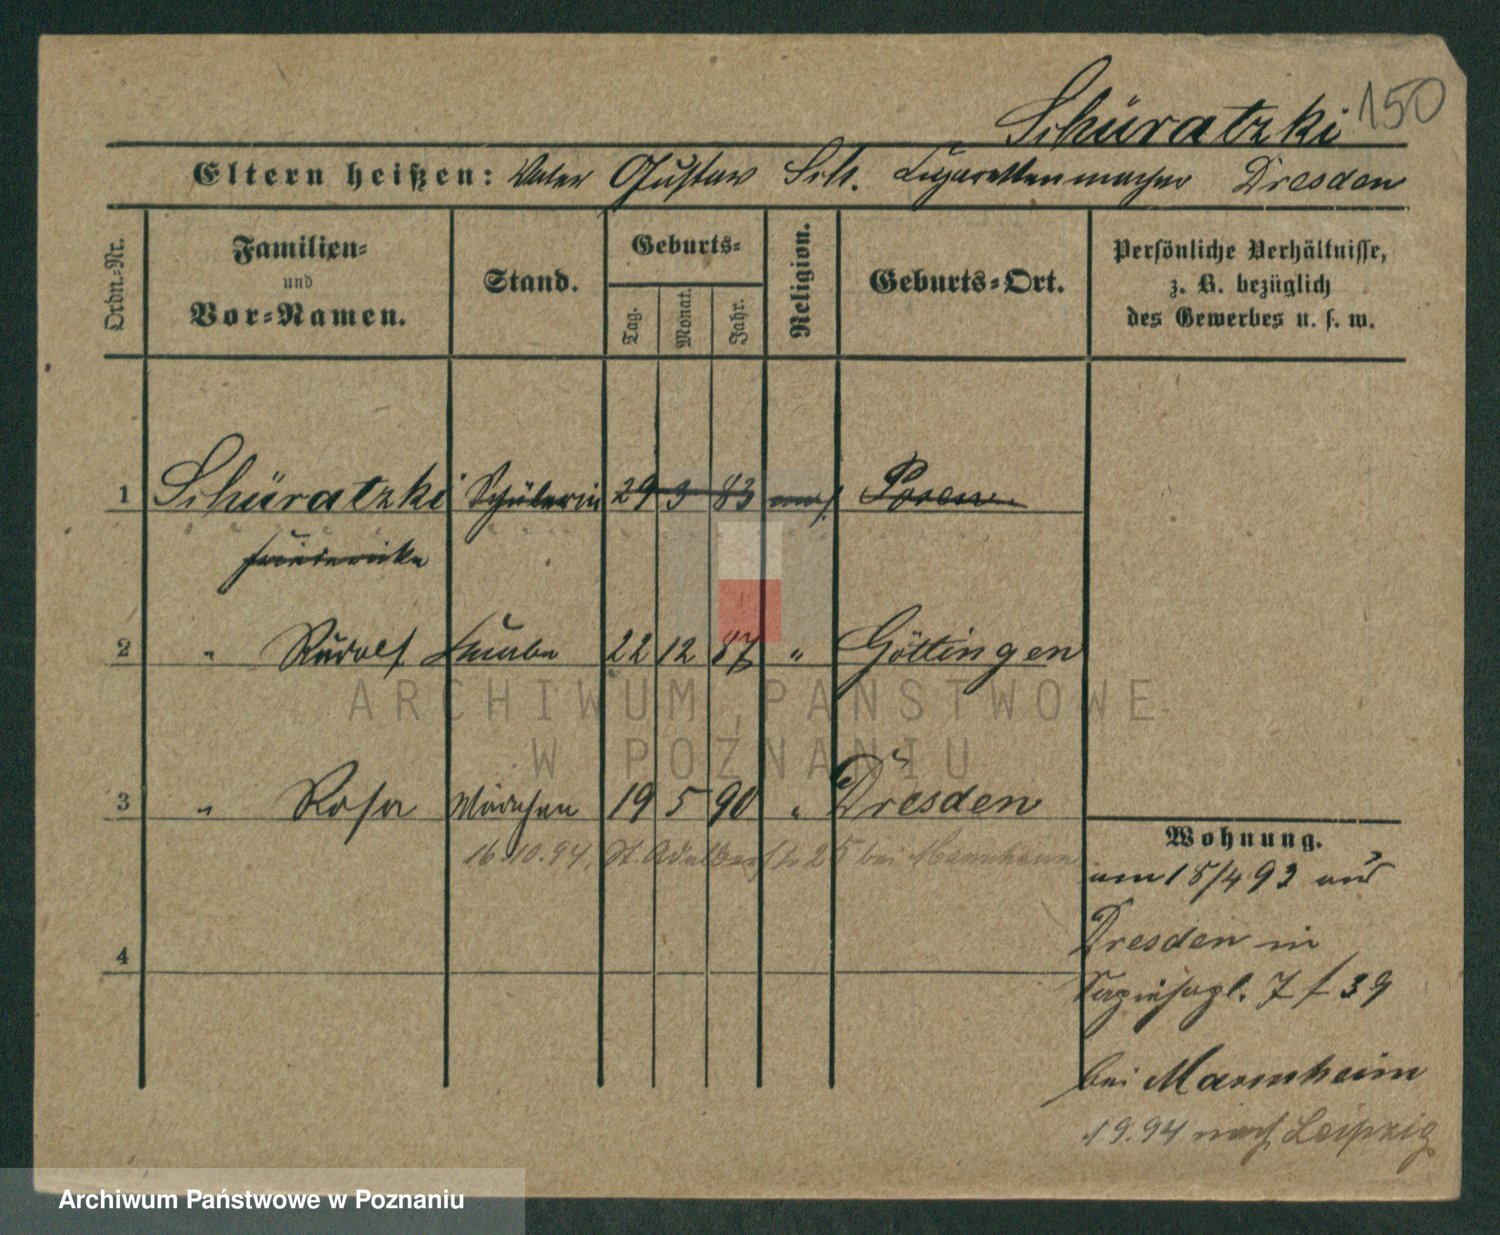 Schüratzki 150
Eltern heißen: Vater Gustav Sch. Cigarettenmacher Dresden
Ordn.-Nr.
Familien-
und
Vor-Namen.
Stand.
Geburts-
Tag.
Monat.
Jahr.
Religion.
Geburts-Ort.
Persönliche Verhältnisse,
z. B. bezüglich
des Gewerbes u. s. w.
1 Schüratzki Schülerin 29 3 83 Posen
Friederike
2 " Rudolf Knabe 22 12 87 " Göttingen
3 " Rosa Mädchen 19 5 90 " Dresden
Wohnung.
16.10.94. St. Adalbertstr 25 bei Mannheim
am 18/4 93 aus
Dresden in
4
7 f 39
bei Mannheim
1.9.94 nach Leipzig
ARCHIWUM PAŃSTWOWE
W POZNANIU
Archiwum Państwowe w Poznaniu